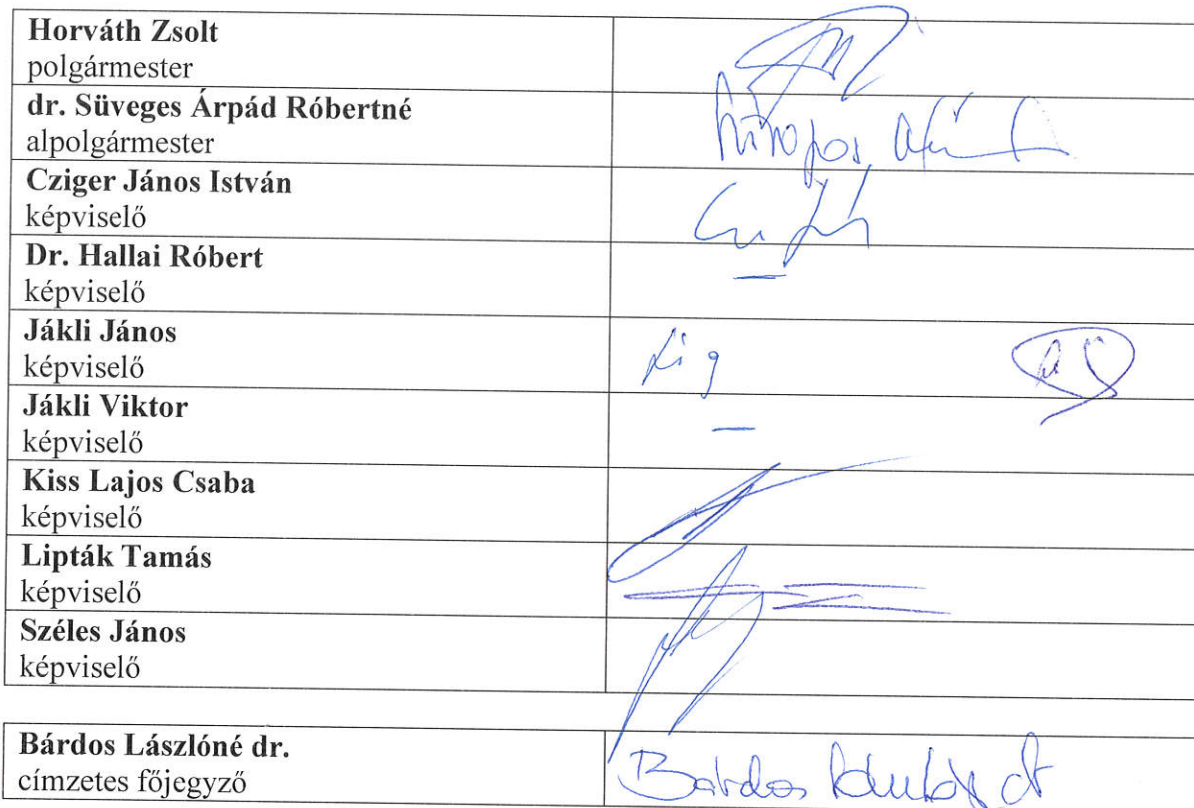 Horváth Zsolt
polgármester
dr. Süveges Árpád Róbertné
alpolgármester
Cziger János István
képviselő
Dr. Hallai Róbert
képviselő
–
Jákli János
képviselő
Jákli Viktor
képviselő
–
Kiss Lajos Csaba
képviselő
Lipták Tamás
képviselő
Széles János
képviselő
Bárdos Lászlóné dr.
címzetes főjegyző
Bárdos